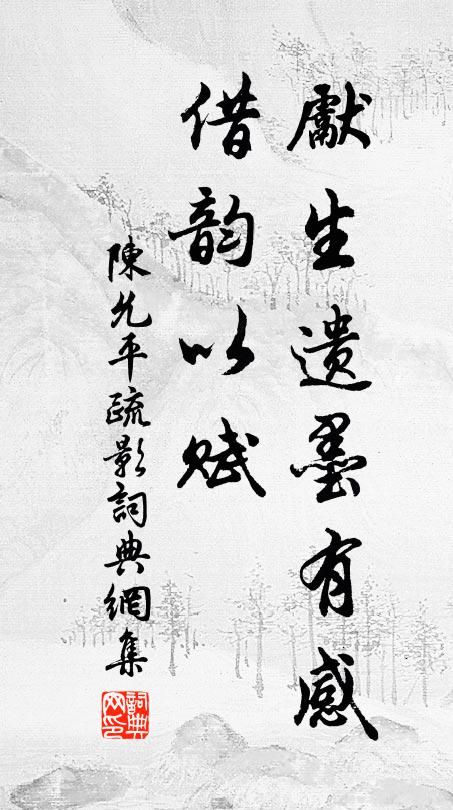 獻生遗墨有感
借韵以赋
陳允平疏影詞典網集
詞典网印